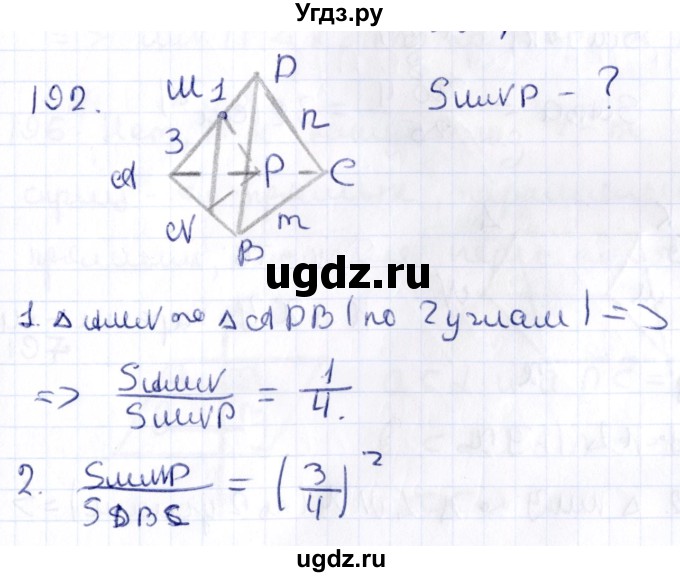 Угдз.ру
192.
M 1 D
SMNP - ?
3 n
A P C
N m
B
ugdz.ru
1. ΔAMN ∾ ΔADB (по 2 углам) =>
=> SAMN / SMNP = 1/4.
2. SMNP / SDBC = (3/4)²
ugdz.ru